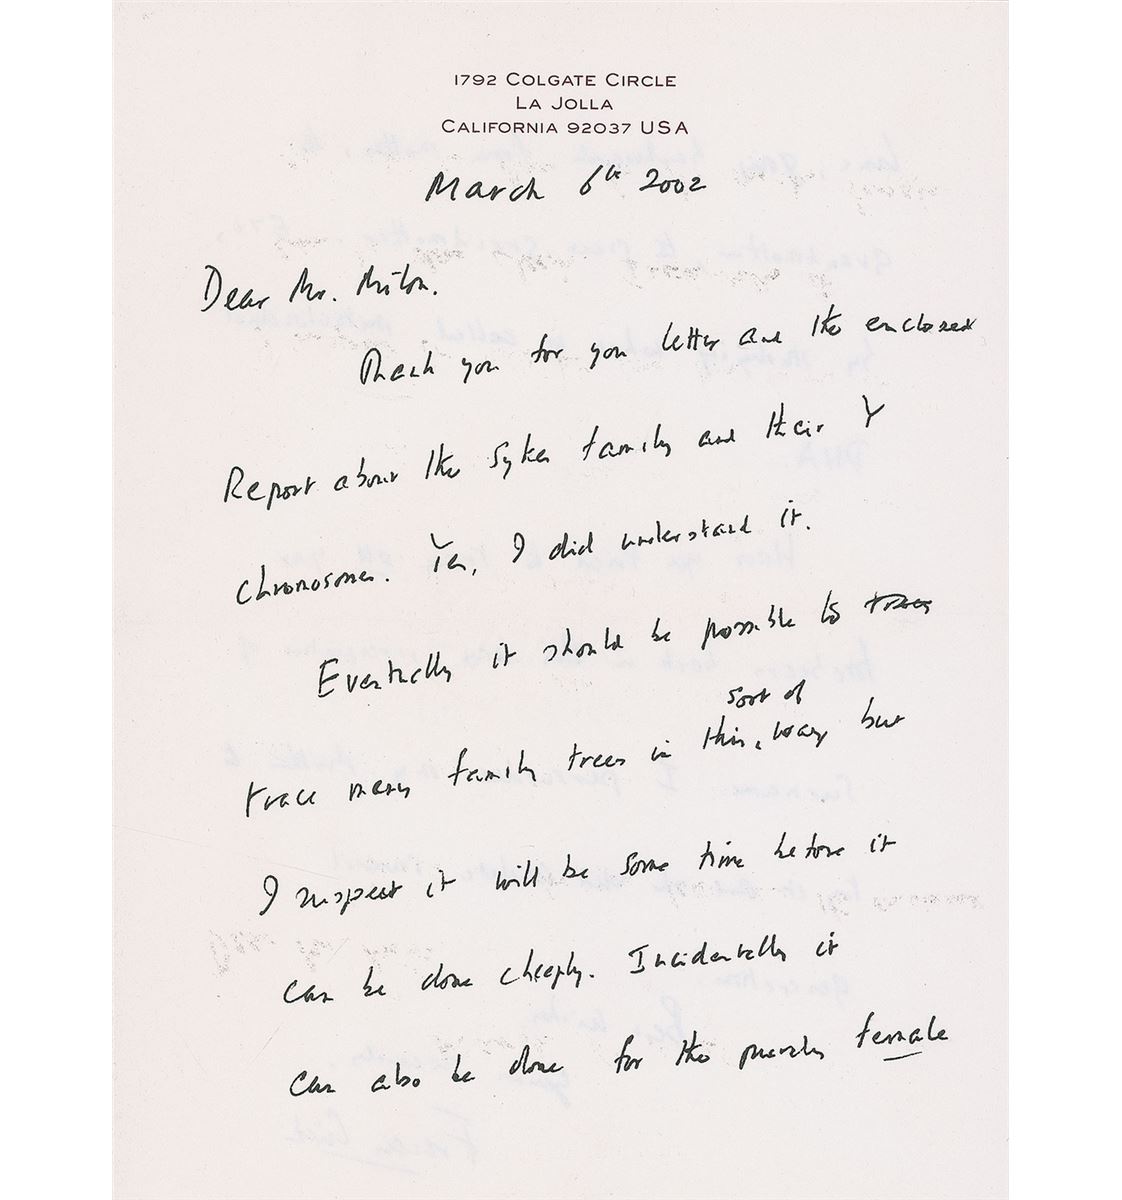 1792 COLGATE CIRCLE
LA JOLLA
CALIFORNIA 92037 USA
March 6th 2002
Dear Mr. Milton.
Thank you for you letter and the enclosed
Report about the Sykes family and their Y
chromosomes. Yes, I did understand it.
Eventually it should be possible to trees
sort of
trace many family trees in this, way but
I suspect it will be some time before it
can be done cheeply. Incidentally it
can also be done for the purely female